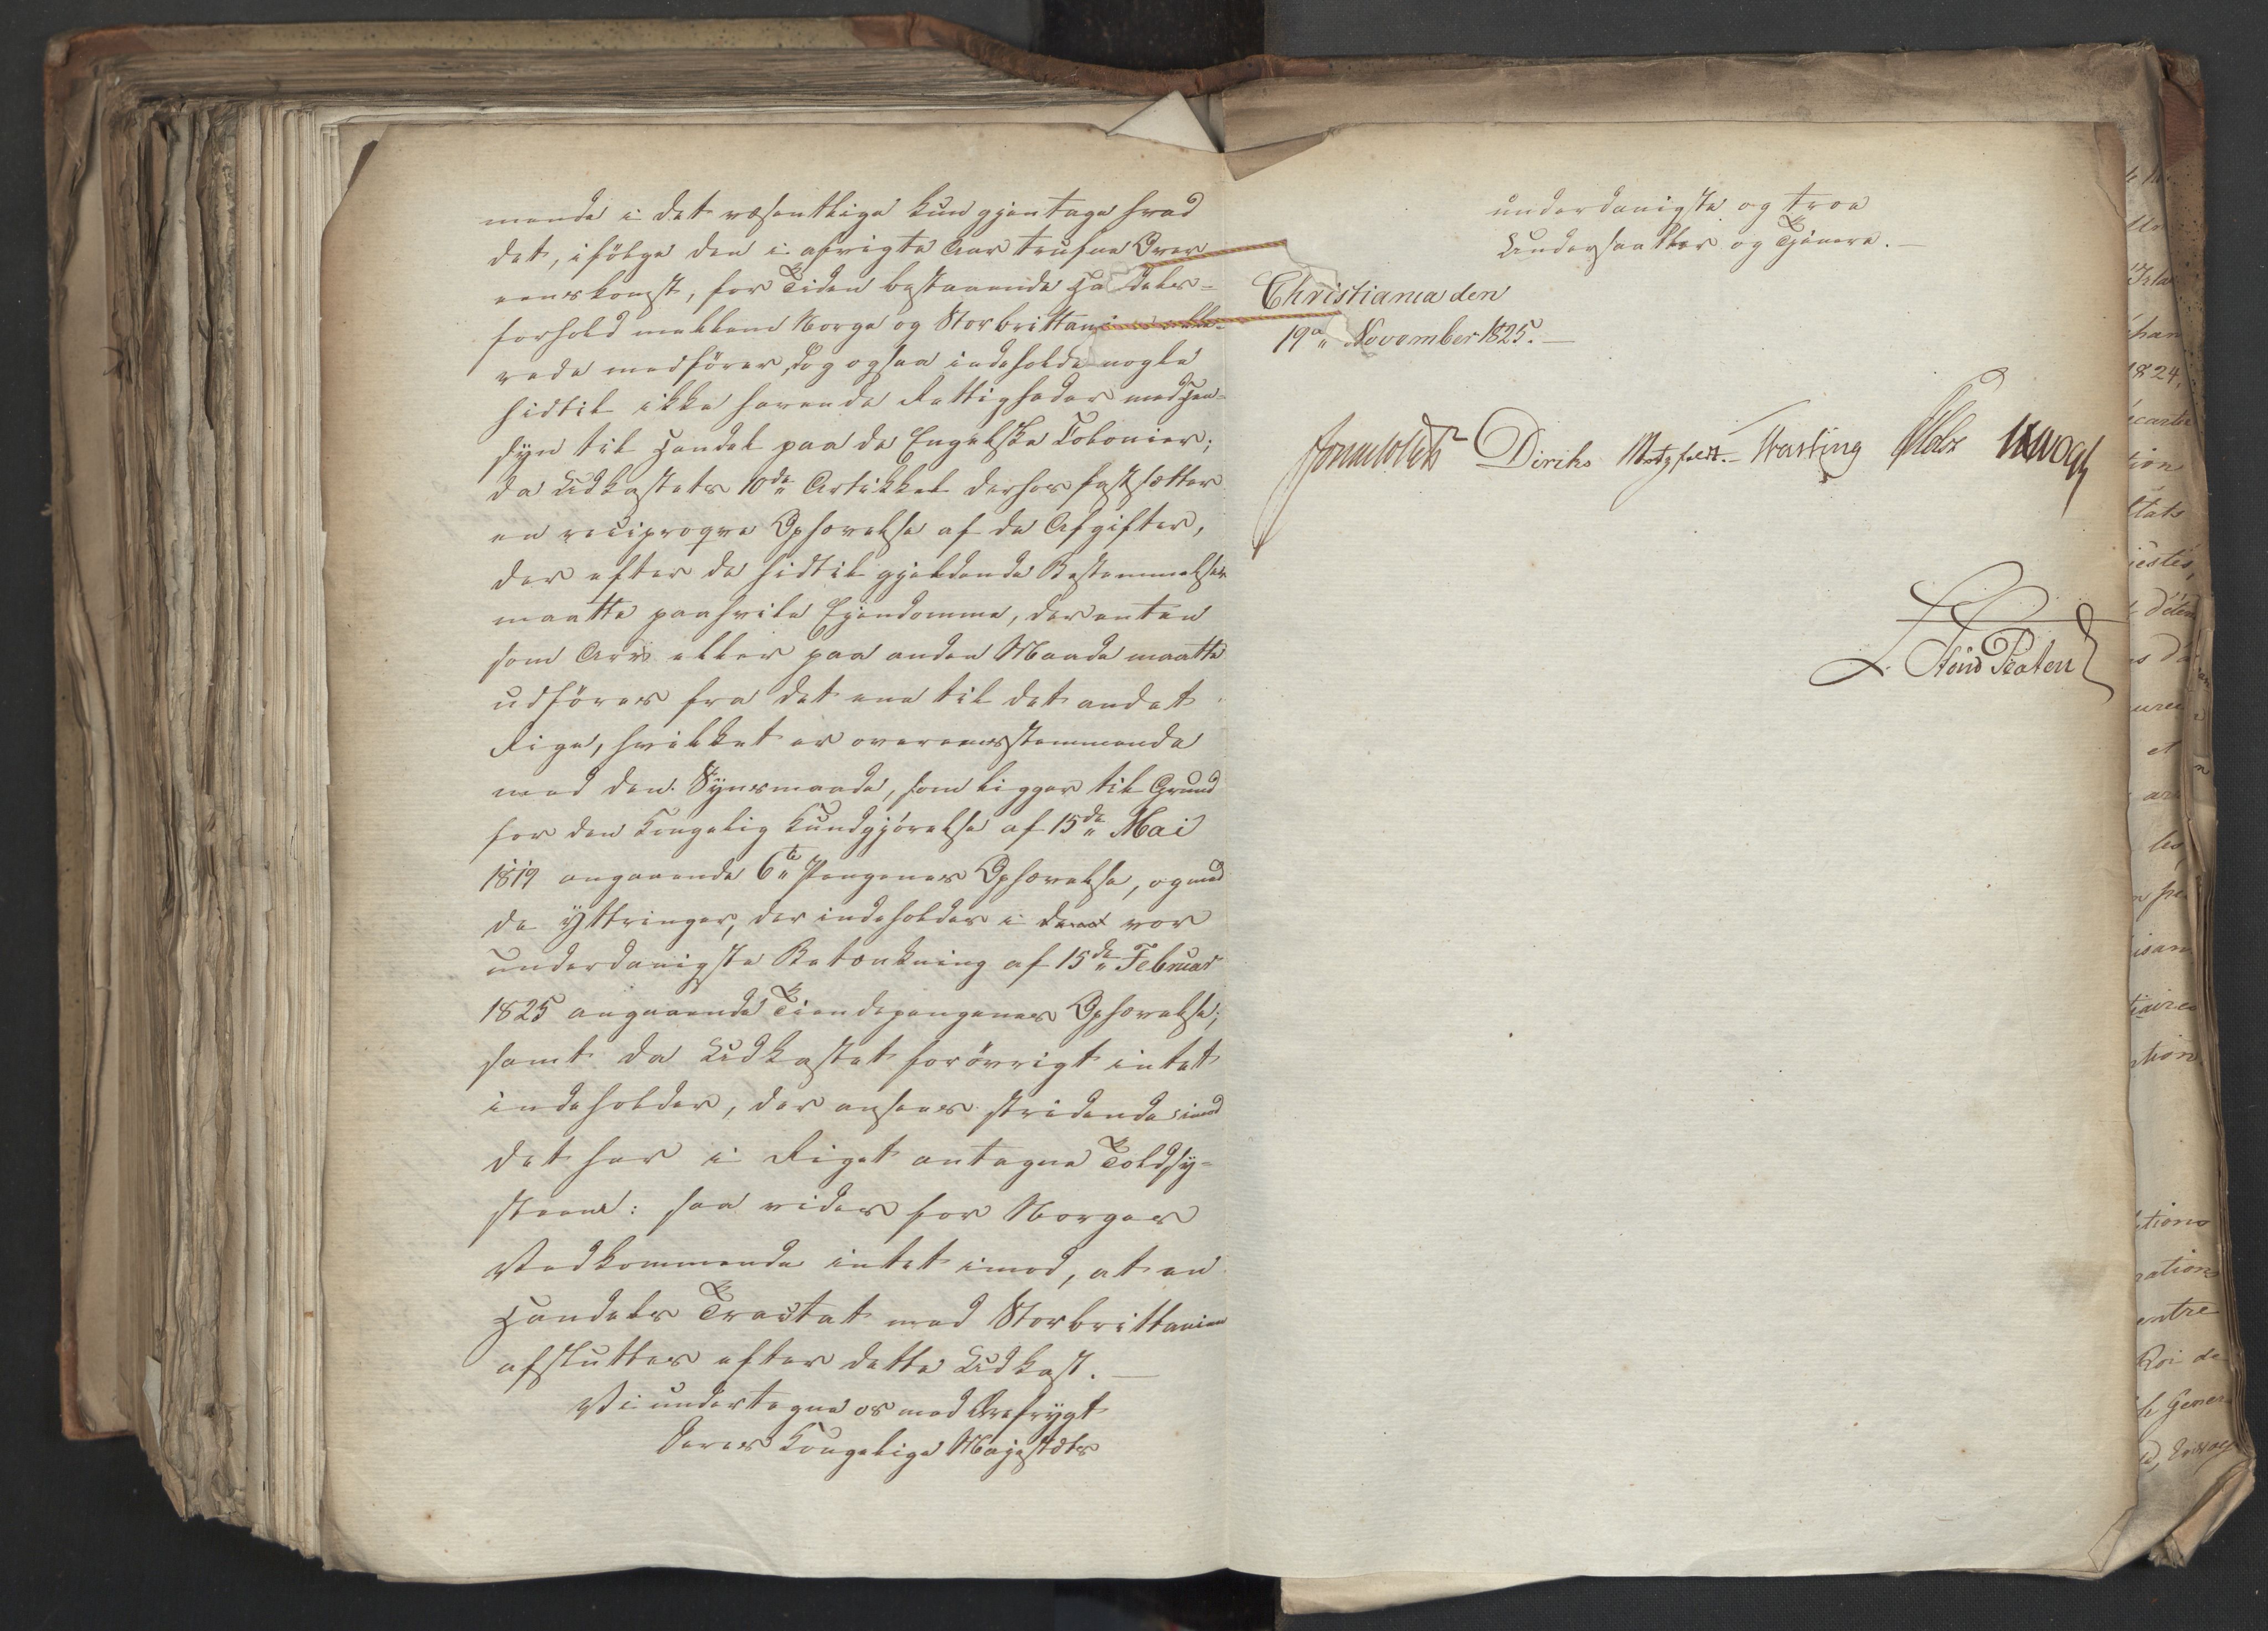 mende i det væsentlige kun gjentage hvad
det, ifölge den i afvigte Aar trufne Over
eenskomst, for Tiden bestaaende Ha dels-
forhold mellem Norge og Storbrittani alle-
rede medförer, dog ogsaa indeholde nogle
hidtil ikke havende Rettigheder med Hen-
syn til Handel paa de Engelske Colonier;
da Udkastets 10de Artikkel derhos fastsætter
en reciproqve Ophævelse af de Afgifter,
der efter de hidtil gjeldende Bestemmelser
maatte paahvile Ejendomme, der enten
som Arv eller paa anden Maade maatte
udföres fra det ene til det andet
Rige, hvilket er overeensstemmende
med den Synsmaade, som ligger til Grund
for den Kongelig Kundgjörelse af 15de Mai
1819 angaaende 6te Pengenes Ophævelse, og med
de Yttringer, der indeholdes i vor
underdanigste Betænkning af 15de Februar
1825 angaaende Tiendepengenes Ophævelse;
samt da Udkastet forövrigt intet
indeholder, der ansees stridende imod
det her i Riget antagne Toldsy-
steem: saa vides for Norges
Vedkommende intet imod, at en
Handels Tractat med Storbrittanien
afsluttes efter dette Udkast. —
Vi undertegne os med Ærefrygt
Deres Kongelige Majestæts
underdanigste og troe
Undersaatter og Tjenere. —
Christiania den
19de November 1825. —
Sommerhielm Diriks Motzfeldt. Fasting Holst Vogt
Stúd Platen